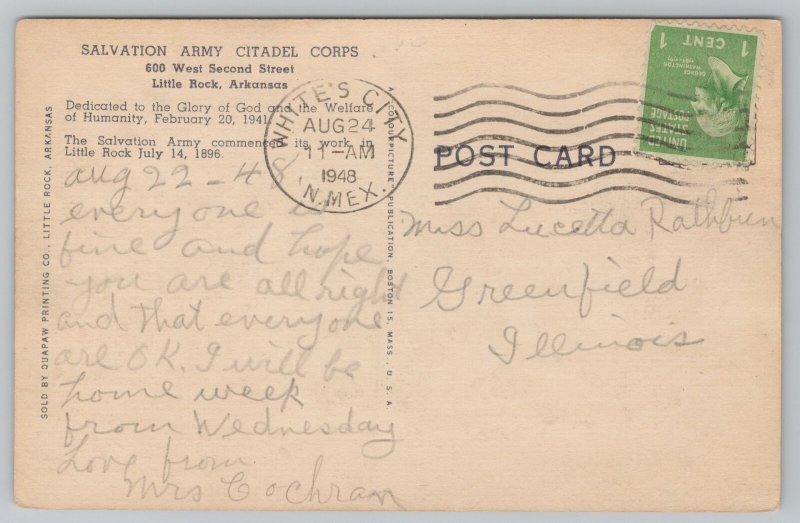 SALVATION ARMY CITADEL CORPS
600 West Second Street
Little Rock, Arkansas
Dedicated to the Glory of God and the Welfare
of Humanity, February 20, 1941.
The Salvation Army commenced its work in
Little Rock July 14, 1896.
Aug 22 - 48,
everyone is
fine and hope
you are all right
and that everyone
are OK. I will be
home week
from Wednesday
Love from
Mrs Cochran
SOLD BY QUAPAW PRINTING CO., LITTLE ROCK, ARKANSAS
A COLOURPICTURE PUBLICATION, BOSTON 15, MASS., U. S. A
WHITE'S CITY
AUG 24
11-AM
1948
N. MEX.
POST CARD
UNITED
STATES
POSTAGE
GEORGE
WASHINGTON
1 CENT 1
Miss Lucetta Rathbun
Greenfield
Illinois